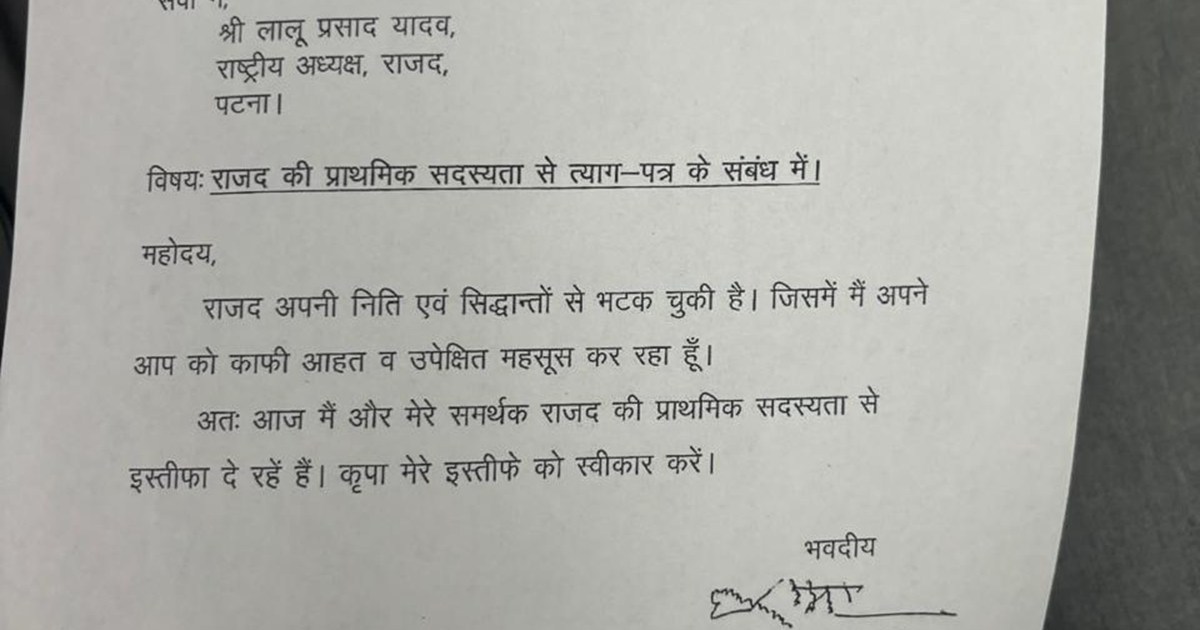 सेवा में,
श्री लालू प्रसाद यादव,
राष्ट्रीय अध्यक्ष, राजद,
पटना।
विषयः राजद की प्राथमिक सदस्यता से त्याग–पत्र के संबंध में।
महोदय,
राजद अपनी निति एवं सिद्धान्तों से भटक चुकी है। जिसमें मैं अपने
आप को काफी आहत व उपेक्षित महसूस कर रहा हूँ।
अतः आज मैं और मेरे समर्थक राजद की प्राथमिक सदस्यता से
इस्तीफा दे रहें हैं। कृपा मेरे इस्तीफे को स्वीकार करें।
भवदीय